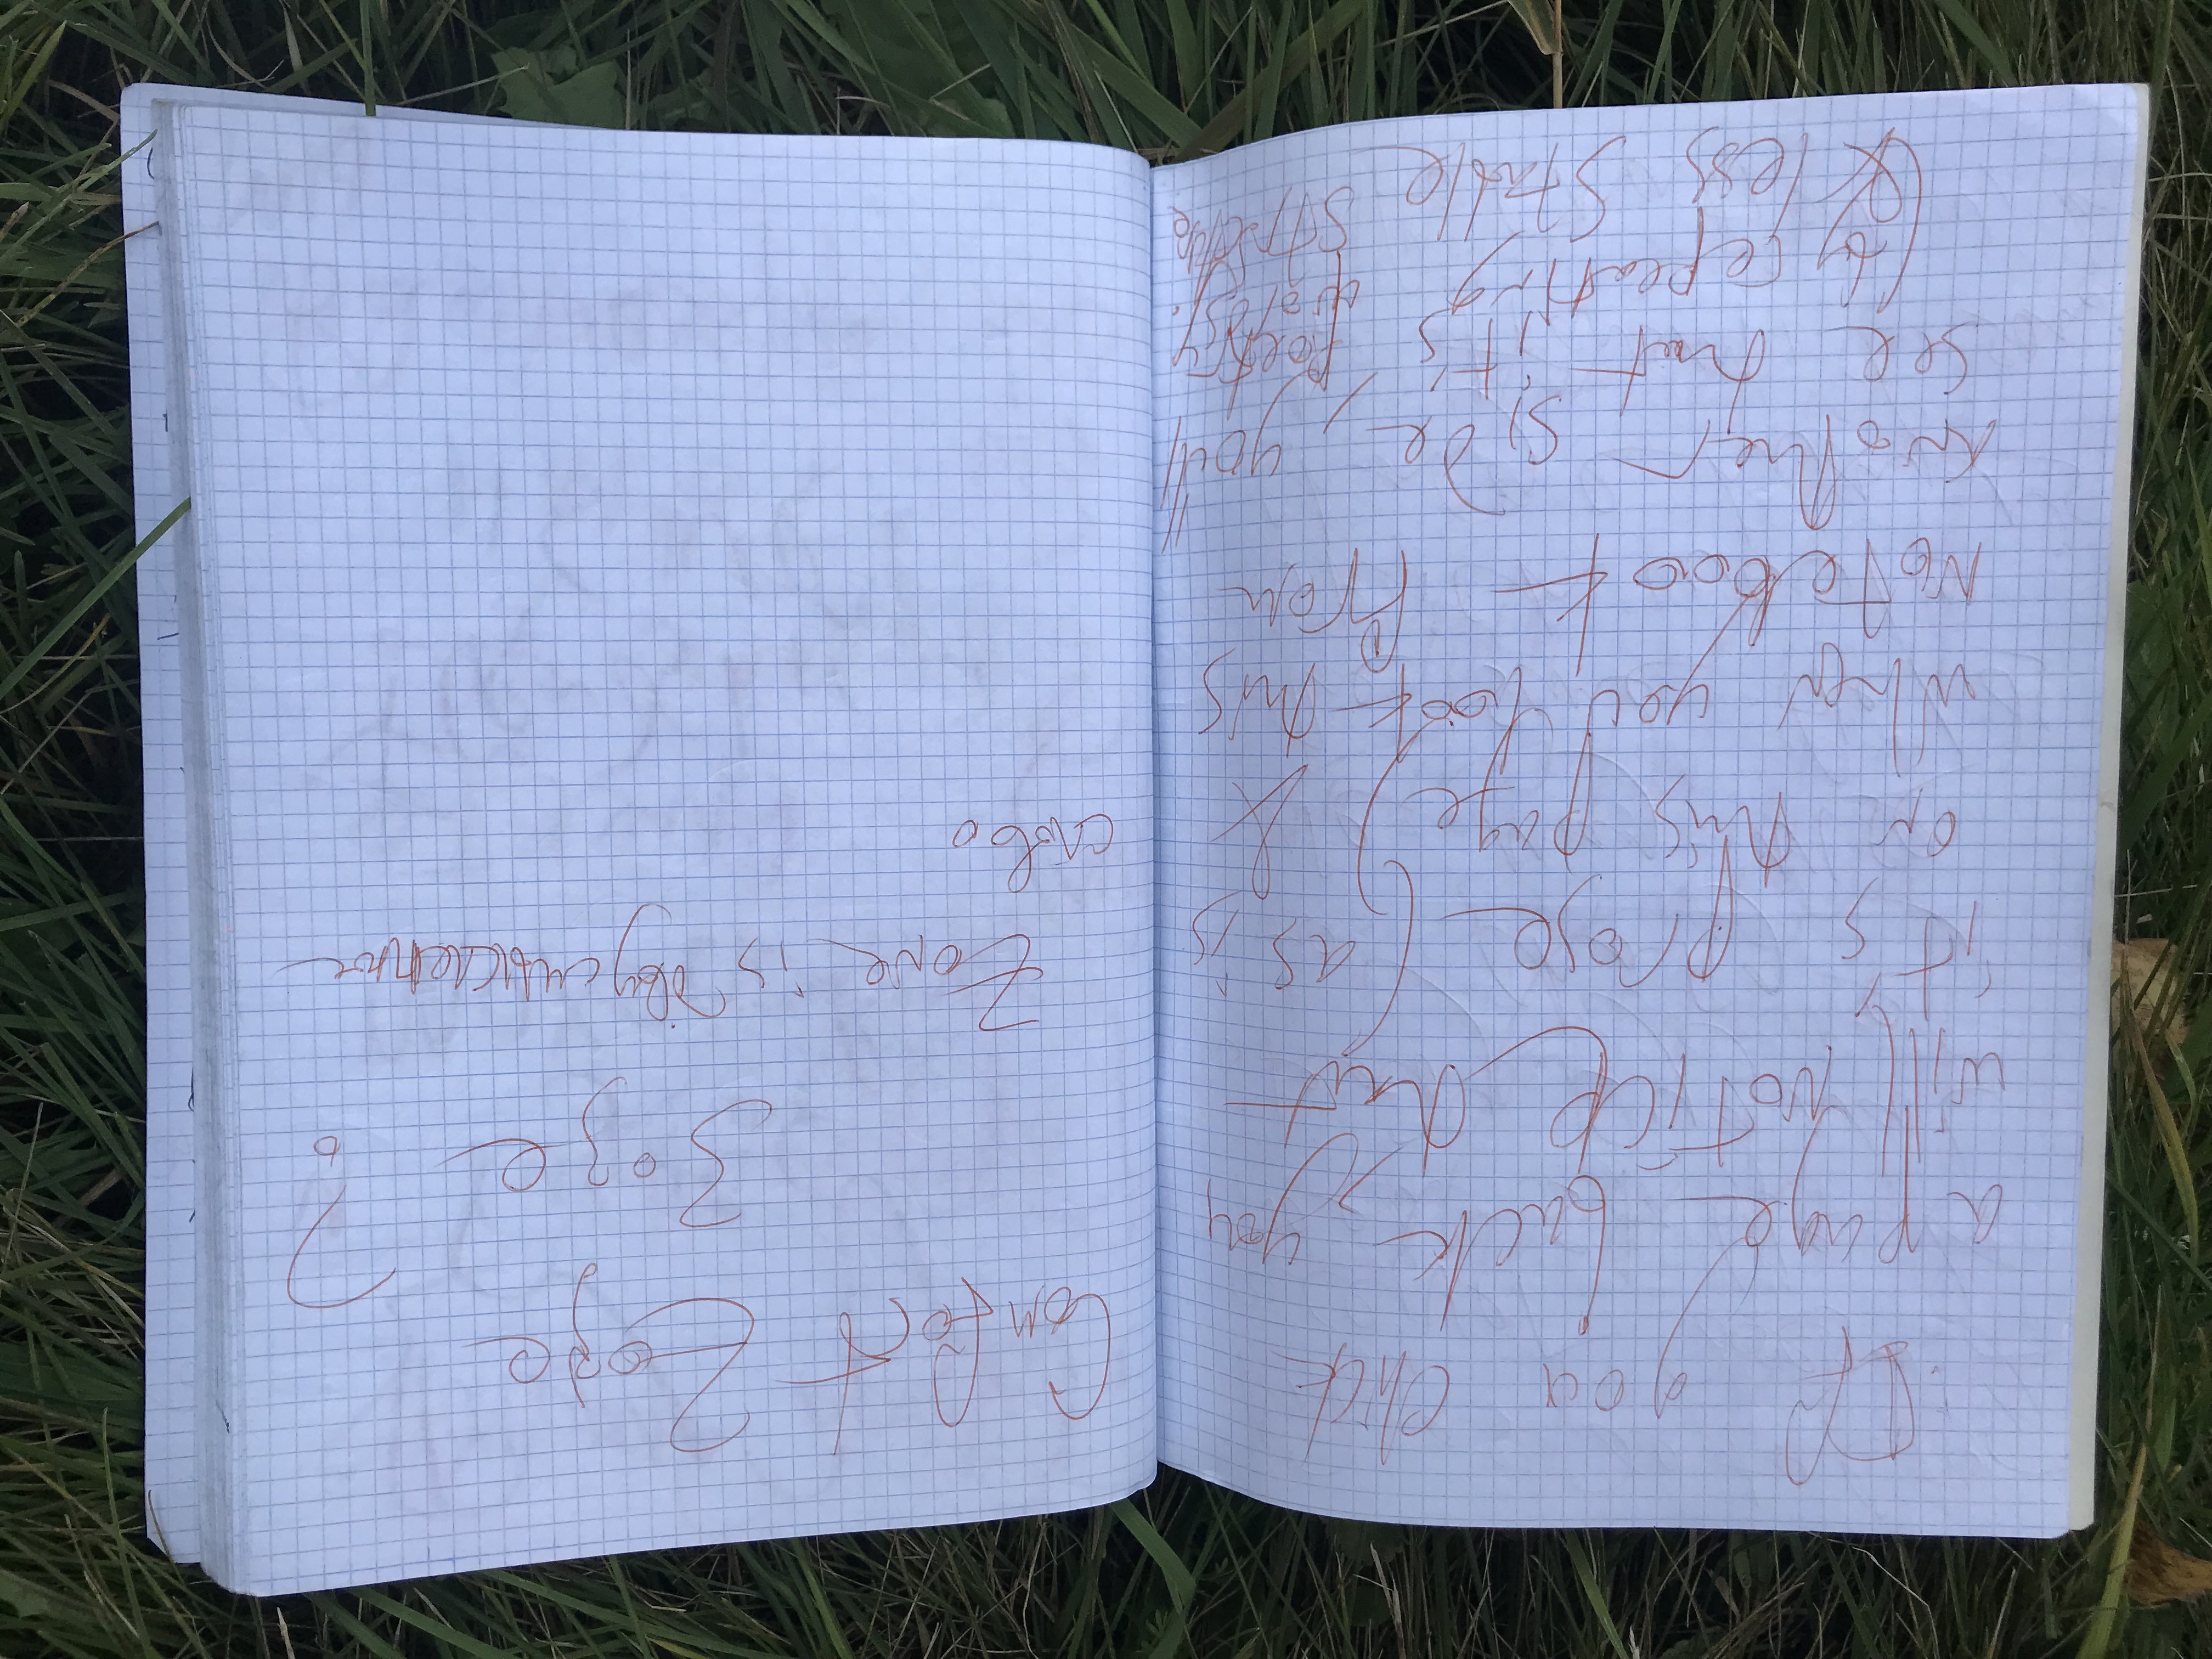 If you click
a page back you
will notice that
it's prose (as is
on this page) &
when you look this
notebook from
another side, you'll
see that it's poetry
(by repeating words).
& less stable structure
Comfort Zoze
Зозе ?
Zone is двусмысленное
слово